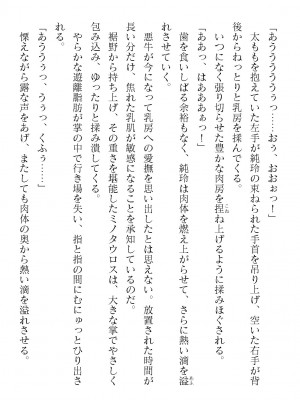 「あううううぅっ……おぅ、おおぉっ！」
太ももを抱えていた左手が純玲の束ねられた手首を吊り上げ、空いた右手が背
後からねっとりと乳房を揉んでくる。
いつになく張り切らせた豊かな肉房を捏ね上げるように揉みほぐされる。
「ああっ、はああぁぁっ！」
歯を食いしばる余裕もなく、純玲は肉体を燃え上がらせ、さらに熱い滴を溢
れさせていく。
悪牛が今になって乳房への愛撫を思い出したとは思えない。放置された時間が
長い分だけ、焦れた乳肌が敏感になることを承知しているのだ。
裾野から持ち上げ、その重さを堪能したミノタウロスは、大きな掌でやさしく
包み込み、ゆったりと揉み潰してくる。
やらかな遊離脂肪が掌の中で行き場を失い、指と指の間にむにゅっとひり出さ
れる。
「あううぅっ、うぅっ、くふぅ……」
慄えながら露な声をあげ、またしても肉体の奥から熱い滴を溢れさせる。